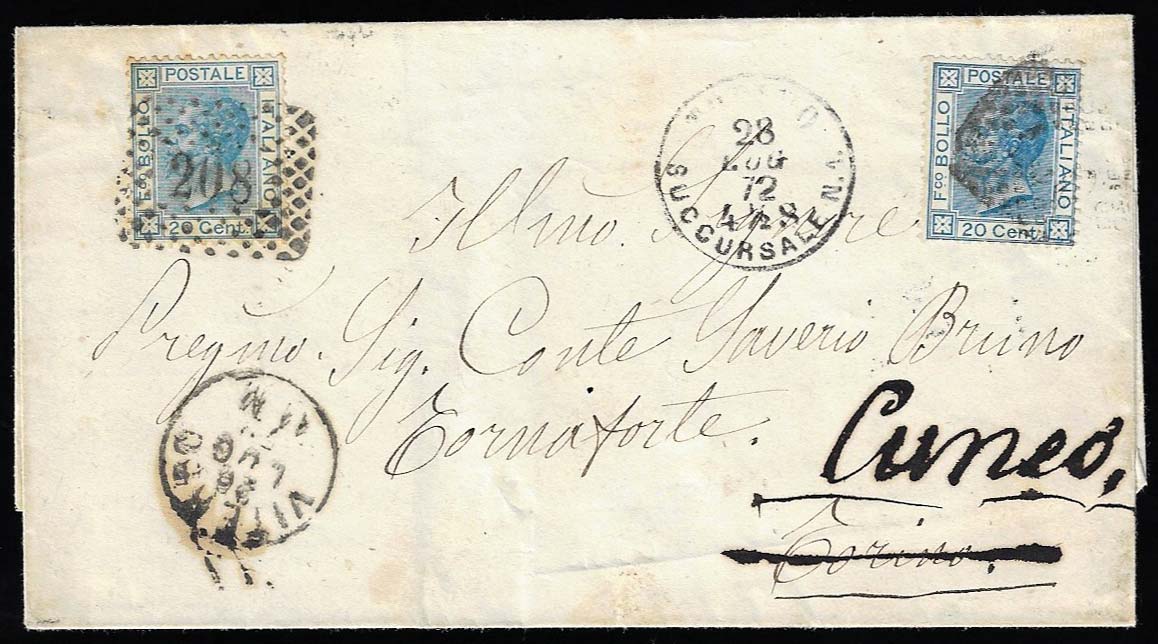 POSTALE
F.co BOLLO
ITALIANO
20 Cent.
208
28
LUG
72
SUCCURSALE N.
POSTALE
F.co BOLLO
ITALIANO
20 Cent.
Illmo. Signore
Pregmo. Sig. Conte Saverio Bruno
Tornaforte.
Cuneo,
Torino.
VITERBO
LUG